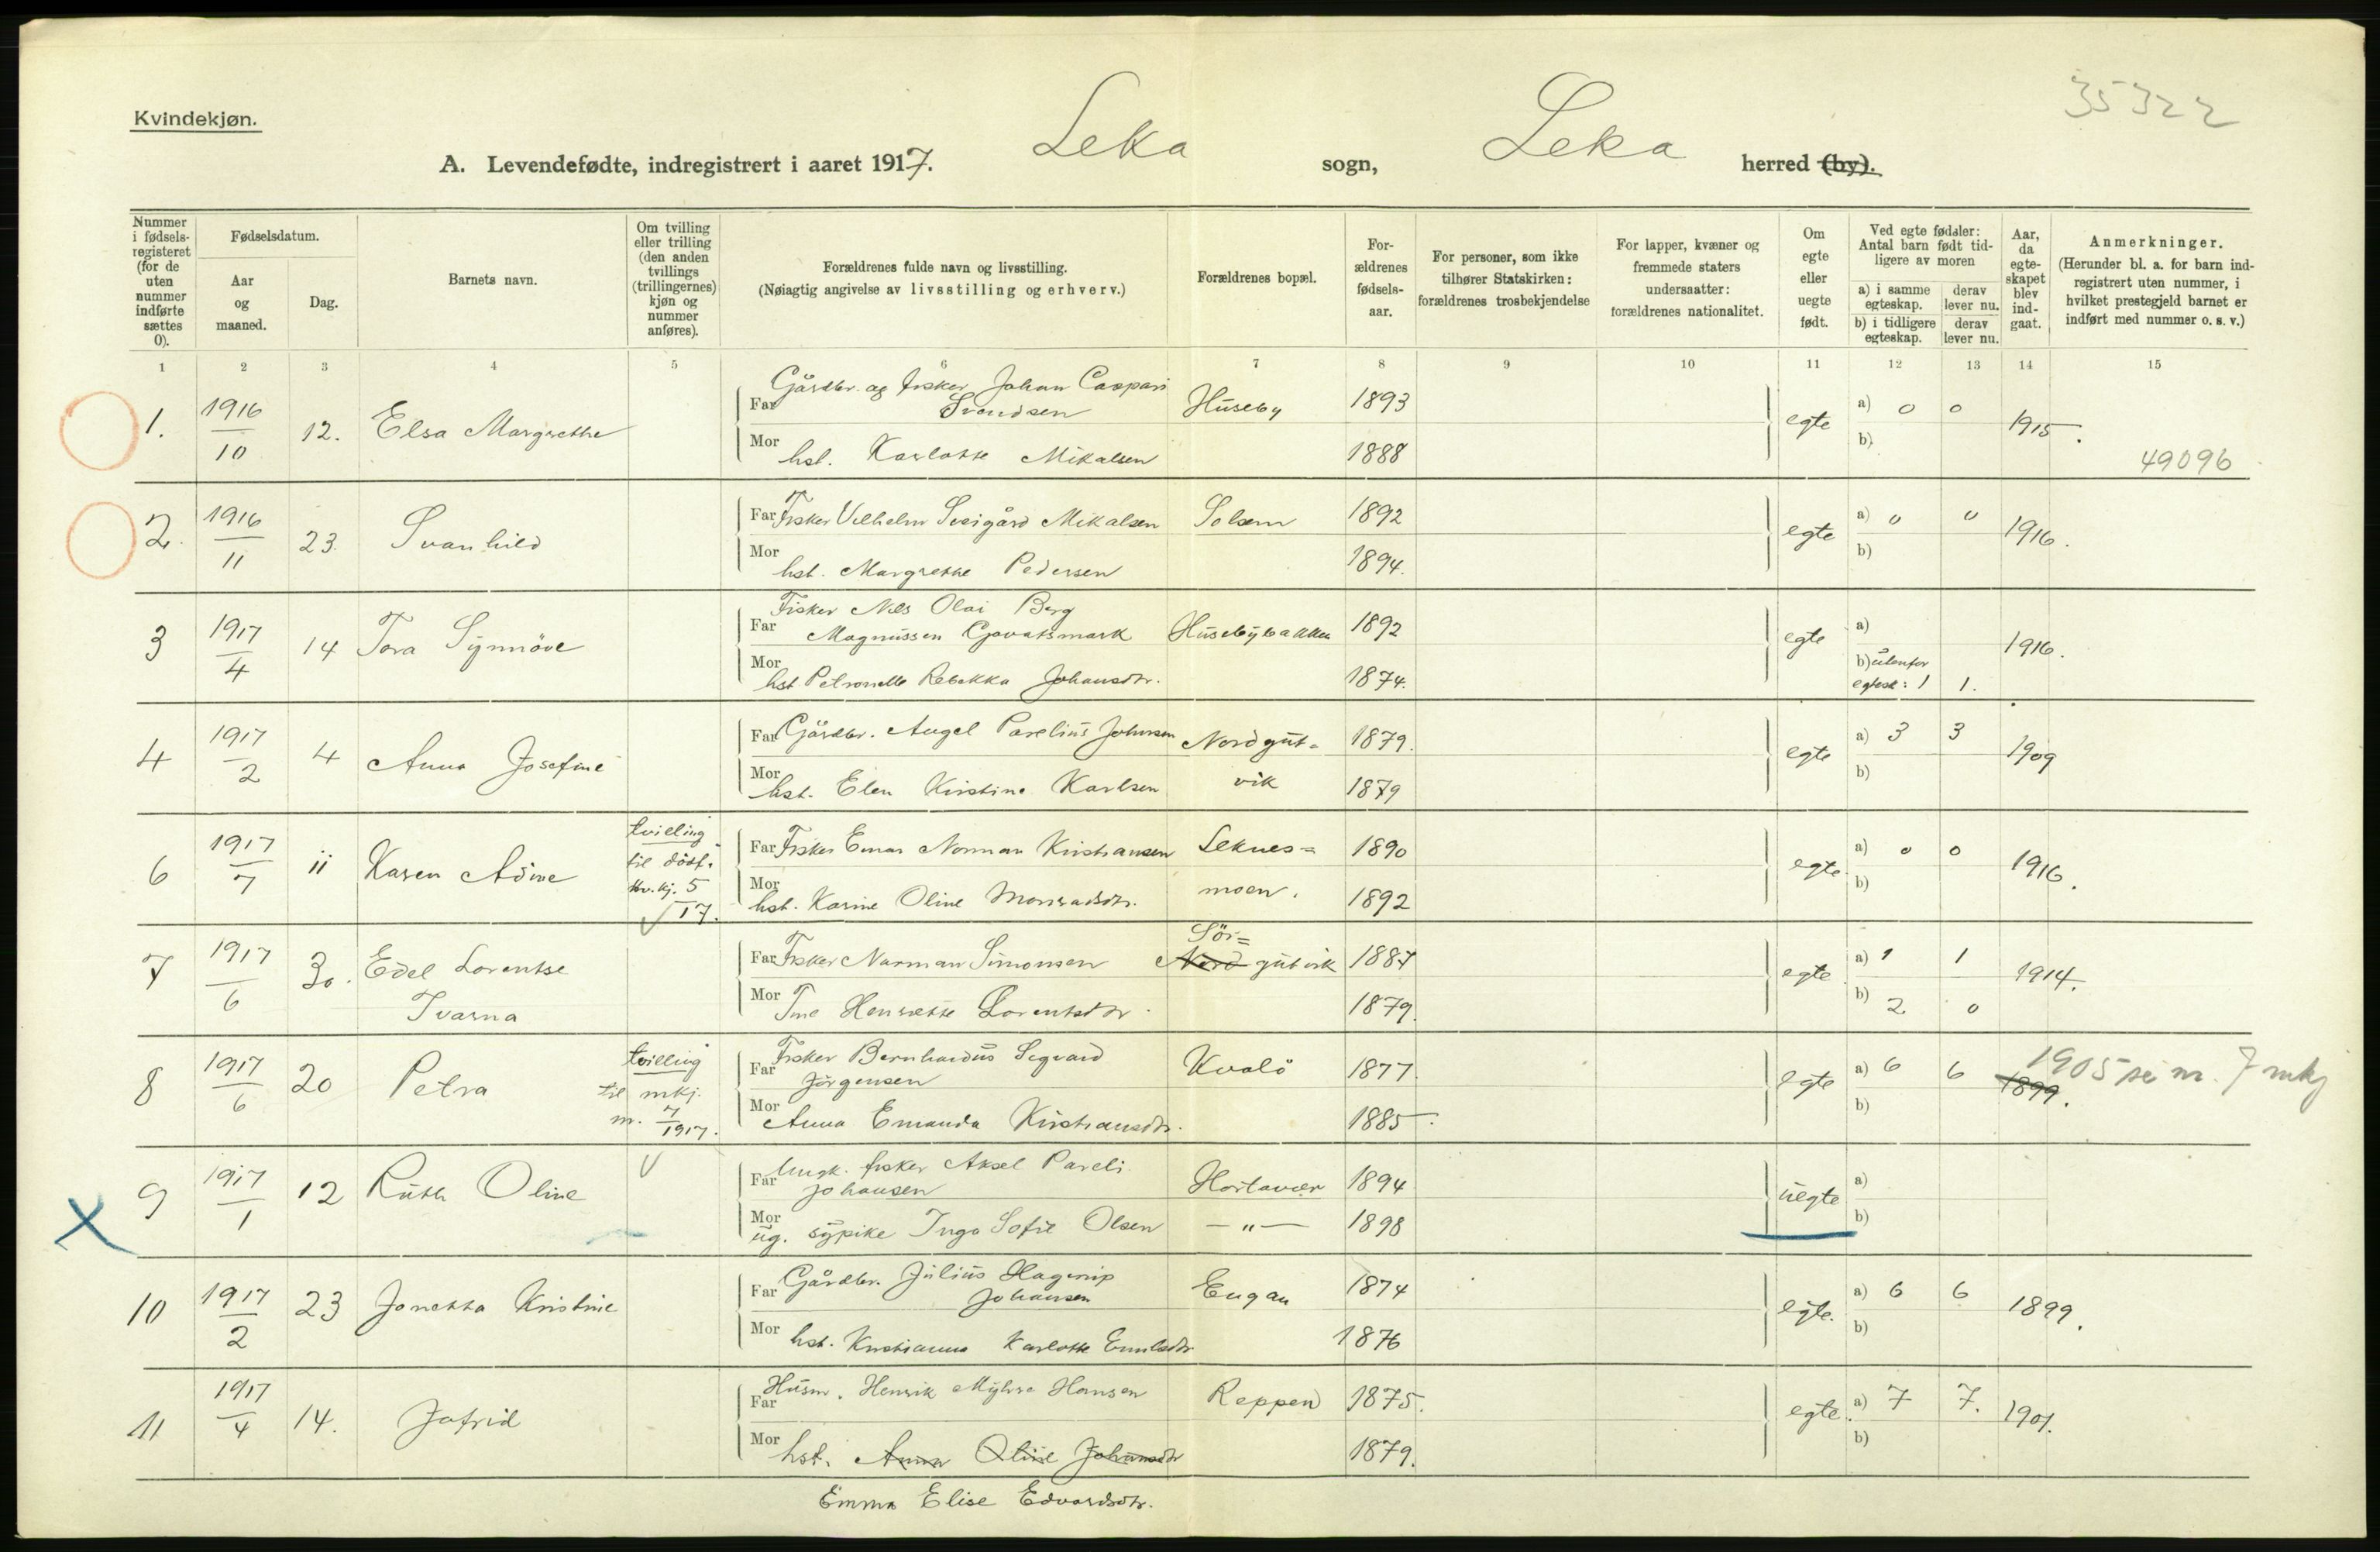 35322
Kvindekjøn.
A. Levendefødte, indregistrert i aaret 1917. Leka sogn, Leka herred (by).
Nummer i fødsels-registeret (for de uten nummer indførte sættes 0).
Fødselsdatum.
Aar og maaned.
Dag.
Barnets navn.
Om tvilling eller trilling (den anden tvillings (trillingernes) kjøn og nummer anføres).
Forældrenes fulde navn og livsstilling.
(Nøiagtig angivelse av livsstilling og erhverv.)
Forældrenes bopæl.
For-ældrenes fødsels-aar.
For personer, som ikke tilhører Statskirken: forældrenes trosbekjendelse
For lapper, kvæner og fremmede staters undersaatter: forældrenes nationalitet.
Om egte eller uegte født.
Ved egte fødsler: Antal barn født tid-ligere av moren
a) i samme egteskap. derav lever nu.
b) i tidligere egteskap. derav lever nu.
Aar, da egte-skapet blev ind-gaat.
Anmerkninger.
(Herunder bl. a. for barn ind-registrert uten nummer, i hvilket prestegjeld barnet er indført med nummer o. s. v.)
1 2 3 4 5 6 7 8 9 10 11 12 13 14 15
1. 1916/10 12. Elsa Margrethe
Far Gårdbr. og fisker Johan Caspari Svendsen Huseby 1893 egte a) 0 0 1915.
Mor hst. Karlotte Mikalsen 1888 b) 49096
2. 1916/11 23. Svanhild
Far Fisker Vilhelm Mikalsen Solsem 1892 egte a) 0 0 1916.
Mor hst. Margrethe Pedersen 1894. b)
3 1917/4 14 Tora Synnöve
Far Fisker Nils Olai Berg Magnussen Husebybakken 1892 egte a) 1916.
Mor hst Petronelle Rebekka Johansdtr. 1874. b) utenfor egtesk: 1 1.
4 1917/2 4 Anna Josefine
Far Gårdbr. Angel Parelius Johnsen Nordgut= 1879. egte a) 3 3 1909
Mor hst. Elen Kirstine Karlsen vik 1879 b)
6 1917/7 11 Karen Adine tvilling til dödf. kv.kj. 5/17.
Far Fisker Einar Norman Kristiansen Leknes= 1890 egte. a) 0 0 1916.
Mor hst. Karine Oline Monradsdtr. moen. 1892 b)
7 1917/6 30. Edel Lorentse Ivarna
Far Fisker Norman Simonsen Sör= Nord gutvik 1887 egte. a) 1 1 1914.
Mor Tine Henrikke Lorentsdtr. 1879. b) 2 0
8 1917/6 20 Petra tvilling til mkj. nr. 7/1917.
Far Fisker Bernhardus Sigvard Jörgensen Kvalö 1877 egte a) 6 6 1899. 1905 se nr. 7 mkj
Mor Anna Emanda Kristiansdtr. 1885. b)
9 1917/1 12 Ruth Oline
Far Ungk. fisker Aksel Pareli Johansen Hortavær 1894 uegte a)
Mor ug. sypike Inga Sofie Olsen —"— 1898 b)
10 1917/2 23 Jonetta Kristine
Far Gårdbr. Julius Hagerup Johansen Engan 1874 egte. a) 6 6 1899.
Mor hst. Kristianna Karlotte Emilsdtr 1876 b)
11 1917/4 14. Jofrid
Far Husm. Henrik Myhre Hansen Reppen 1875. egte. a) 7 7. 1901.
Mor hst. Anna Oline Johansdtr 1879. b)
Emma Elise Edvardsdtr.